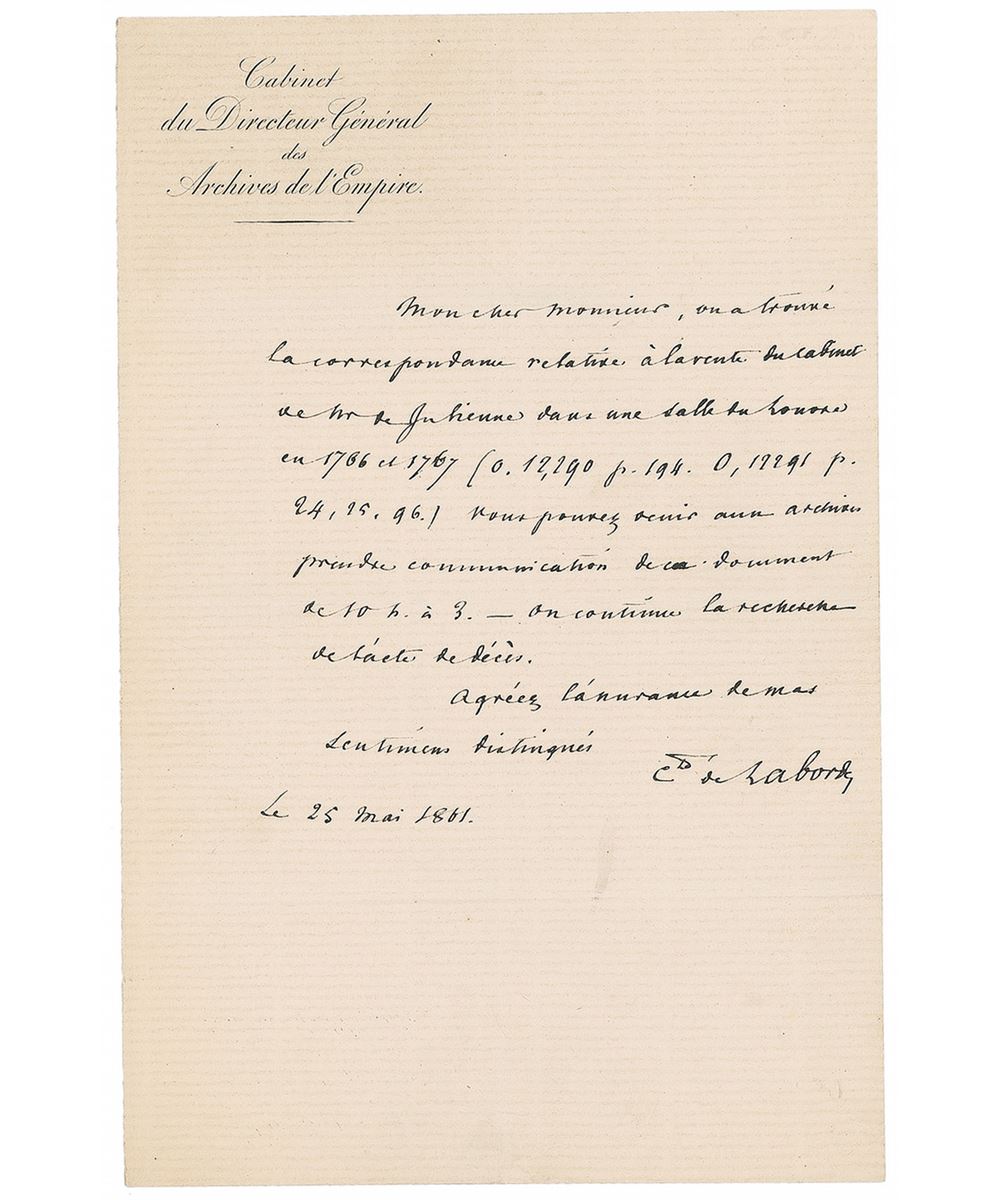 Cabinet
du Directeur Général
des
Archives de l'Empire.
Mon cher Monsieur, on a trouvé
la correspondance relative à la vente du cabinet
de Mr de Julienne dans une salle du Louvre
en 1766 et 1767 (O. 12,290 p. 194. O, 12291 p.
24, 25, 96.) Vous pouvez venir aux archives
prendre communication de ce document
de 10 h. à 3. — on continue la recherche
de l'acte de décès.
Agréez l'assurance de mes
sentimens distingués
Cte de Laborde
Le 25 Mai 1861.